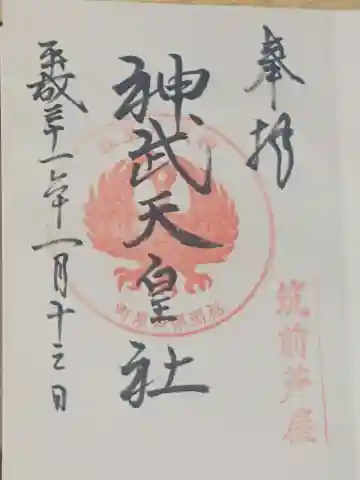 奉拝
神武天皇社
平成三十一年一月十三日
筑前芦屋